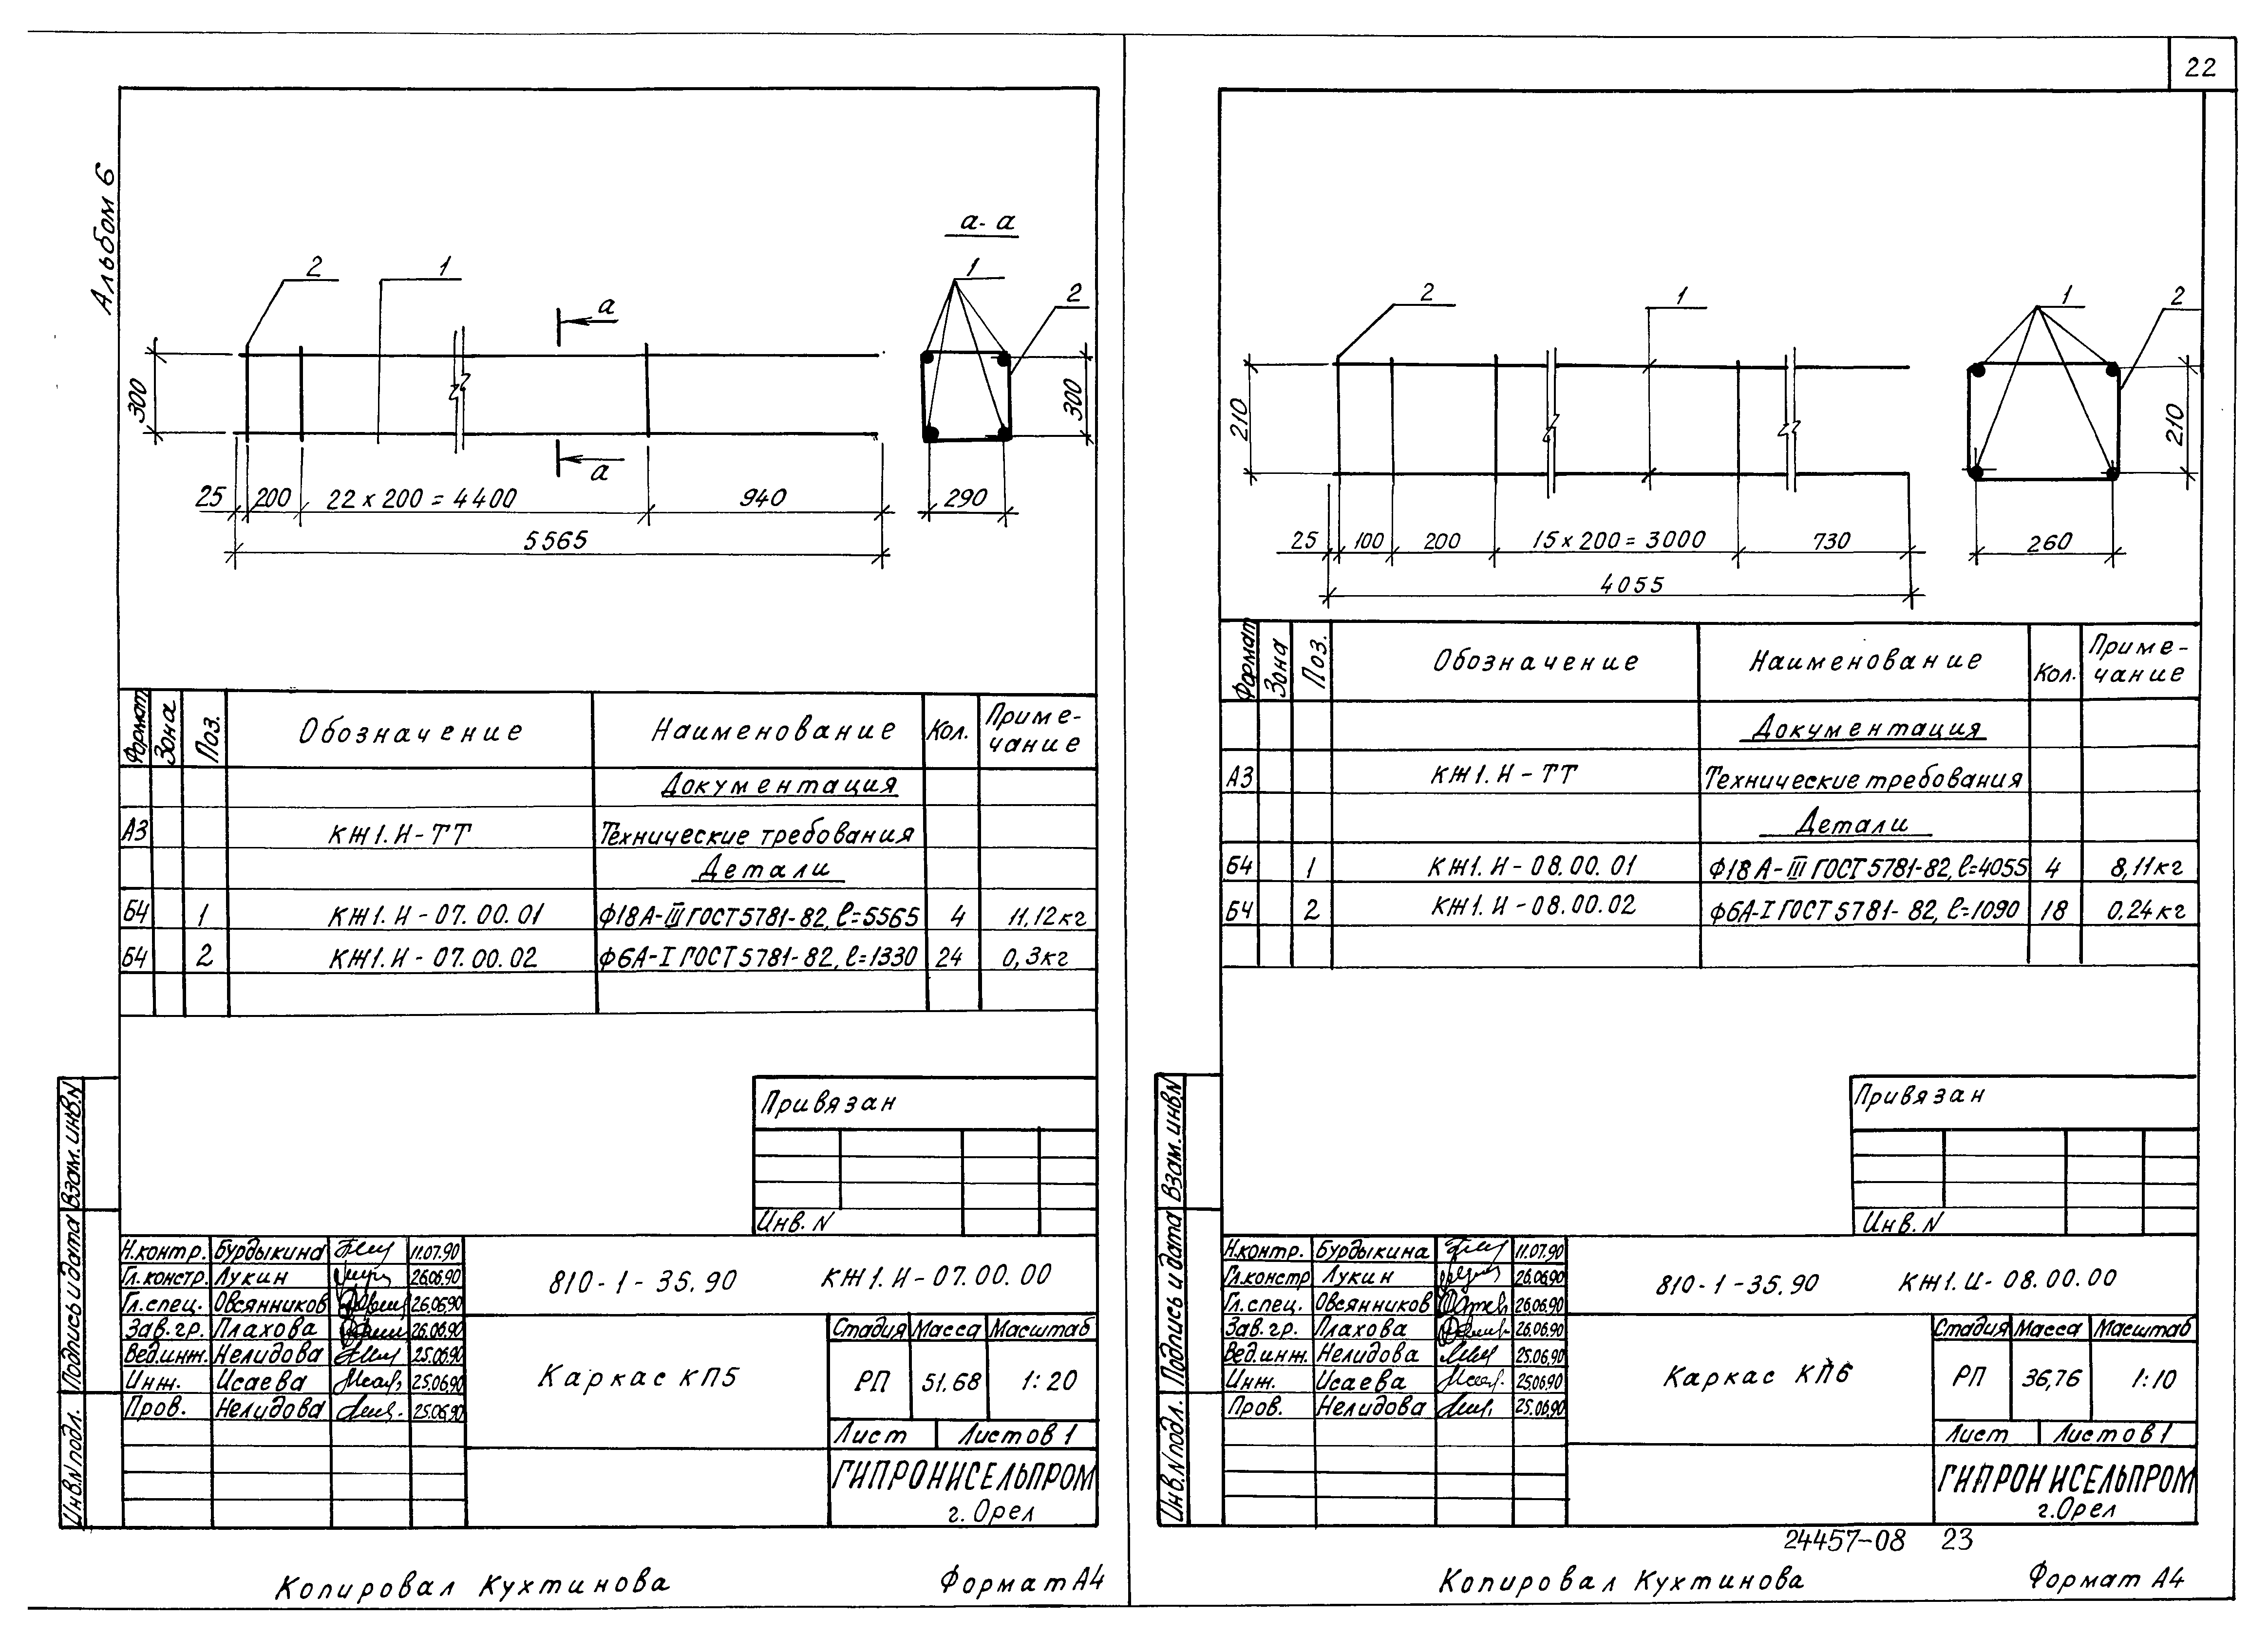 22
Альбом 6
а-а
2
1
1
2
а
а
300
300
25
200
22 x 200 = 4400
940
290
5565
Формат
Зона
Поз.
Обозначение
Наименование
Кол.
Приме-
чание
Документация
А3 КЖ1.И-ТТ Технические требования
Детали
Б4 1 КЖ1.И-07.00.01 Ф18А-III ГОСТ 5781-82, ℓ=5565 4 11,12кг
Б4 2 КЖ1.И-07.00.02 Ф6А-I ГОСТ 5781-82, ℓ=1330 24 0,3кг
Привязан
Инв. N
Взам. инв. N
Подпись и дата
Инв. N подл.
Н.контр. Бурдыкина 11.07.90
Гл.констр. Лукин 26.06.90
Гл.спец. Овсянников 26.06.90
Зав.гр. Плахова 26.06.90
Вед.инж. Нелидова 25.06.90
Инж. Исаева 25.06.90
Пров. Нелидова 25.06.90
810-1-35.90 КЖ1.И-07.00.00
Каркас КП5
Стадия Масса Масштаб
РП 51.68 1:20
Лист Листов 1
ГИПРОНИСЕЛЬПРОМ
г. Орел
Копировал Кухтинова Формат А4
2
1
1
2
210
210
25
100
200
15 x 200 = 3000
730
260
4055
Формат
Зона
Поз.
Обозначение
Наименование
Кол.
Приме-
чание
Документация
А3 КЖ1.И-ТТ Технические требования
Детали
Б4 1 КЖ1.И-08.00.01 Ф18А-III ГОСТ 5781-82, ℓ=4055 4 8,11кг
Б4 2 КЖ1.И-08.00.02 Ф6А-I ГОСТ 5781-82, ℓ=1090 18 0,24кг
Привязан
Инв. N
Взам. инв. N
Подпись и дата
Инв. N подл.
Н.контр. Бурдыкина 11.07.90
Гл.констр Лукин 26.06.90
Гл.спец. Овсянников 26.06.90
Зав.гр. Плахова 26.06.90
Вед.инж. Нелидова 25.06.90
Инж. Исаева 25.06.90
Пров. Нелидова 25.06.90
810-1-35.90 КЖ1.И-08.00.00
Каркас КП6
Стадия Масса Масштаб
РП 36,76 1:10
Лист Листов 1
ГИПРОНИСЕЛЬПРОМ
г. Орел
24457-08 23
Копировал Кухтинова Формат А4